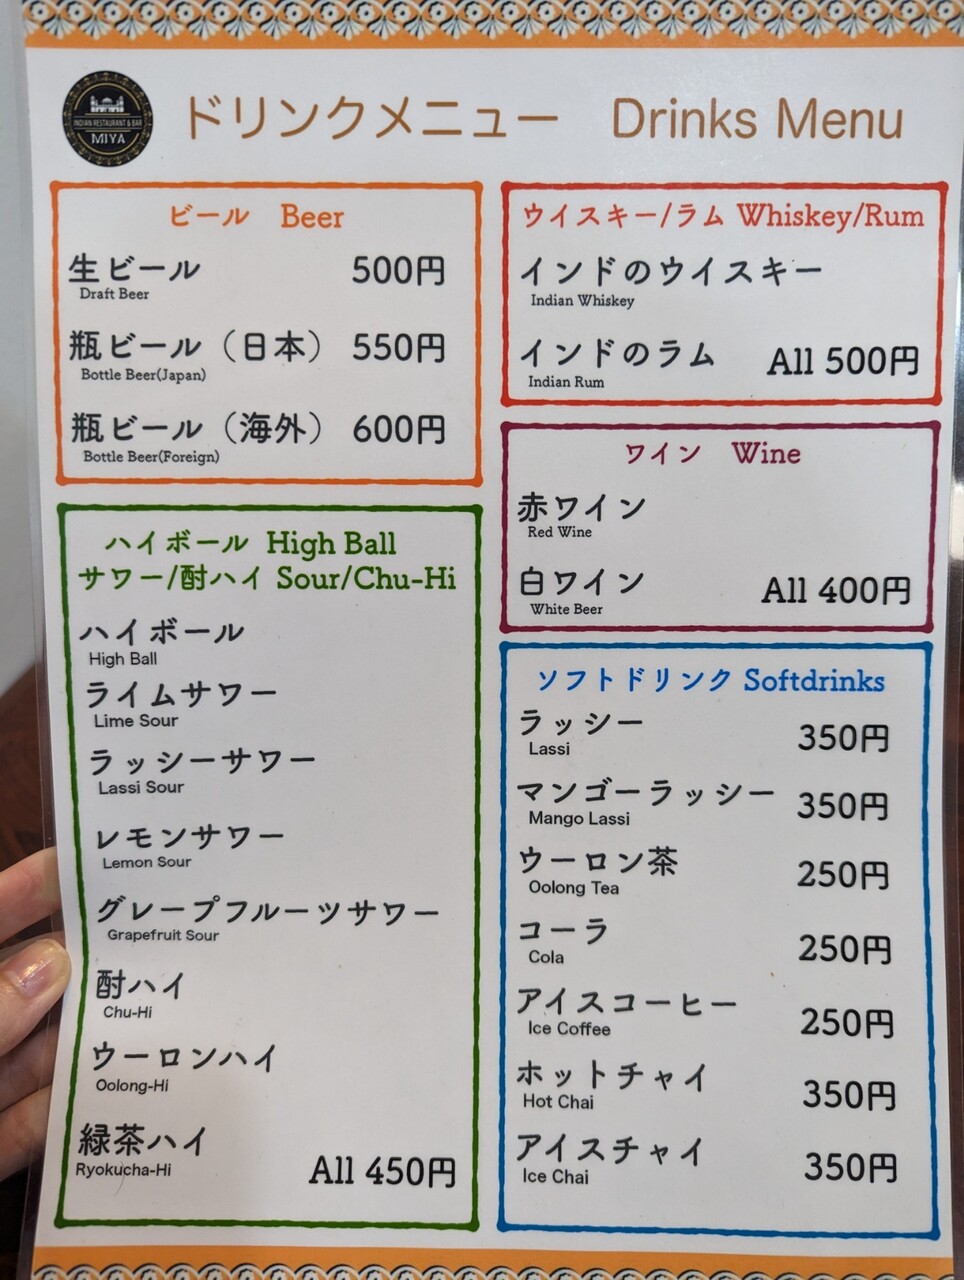 INDIAN RESTAURANT & BAR
MIYA
ドリンクメニュー Drinks Menu
ビール Beer
生ビール 500円
Draft Beer
瓶ビール（日本） 550円
Bottle Beer(Japan)
瓶ビール（海外） 600円
Bottle Beer(Foreign)
ハイボール High Ball
サワー/酎ハイ Sour/Chu-Hi
ハイボール
High Ball
ライムサワー
Lime Sour
ラッシーサワー
Lassi Sour
レモンサワー
Lemon Sour
グレープフルーツサワー
Grapefruit Sour
酎ハイ
Chu-Hi
ウーロンハイ
Oolong-Hi
緑茶ハイ
Ryokucha-Hi All 450円
ウイスキー/ラム Whiskey/Rum
インドのウイスキー
Indian Whiskey
インドのラム All 500円
Indian Rum
ワイン Wine
赤ワイン
Red Wine
白ワイン All 400円
White Beer
ソフトドリンク Softdrinks
ラッシー 350円
Lassi
マンゴーラッシー 350円
Mango Lassi
ウーロン茶 250円
Oolong Tea
コーラ 250円
Cola
アイスコーヒー 250円
Ice Coffee
ホットチャイ 350円
Hot Chai
アイスチャイ 350円
Ice Chai